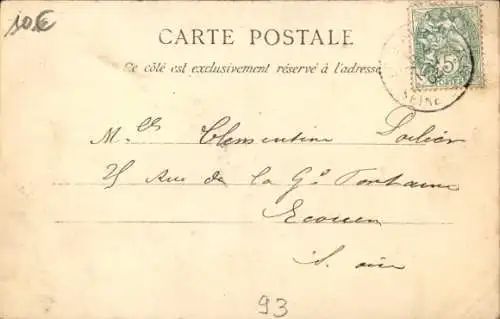 10€
CARTE POSTALE
Ce côté est exclusivement réservé à l'adresse
5c
SEINE
Mlle Clementine
25 Rue de la Gde Fontaine
Ecouen
S. oise
93